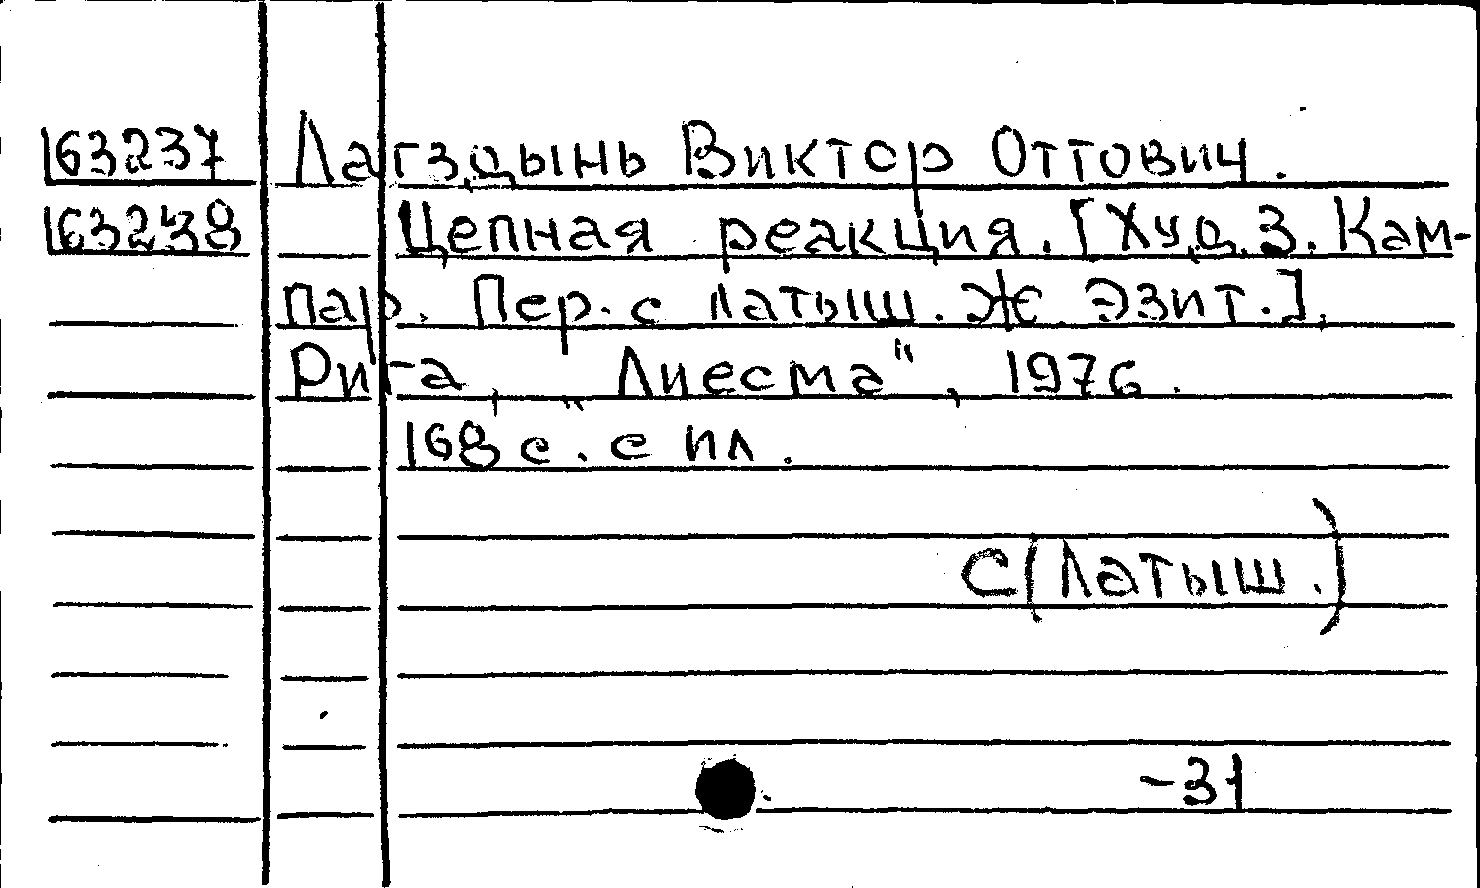 163237 Лагздынь Виктор Оттович.
163238 Цепная реакция. [Худ. З. Кам-
пар. Пер. с латыш. Ж. Эзит.].
Рига, „Лиесма“, 1976.
168 с. с ил.
С(Латыш.)
-31